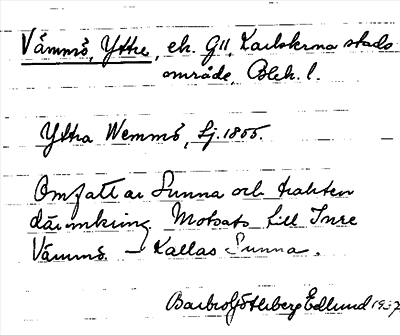 Vämmö, Yttre, ek. G11, Karlskrona stads
område, Blek. l.
Yttra Wemmö, Lj. 1855.
Omfattar Sunna och trakten
däromkring. Motsats till Inre
Vämmö. – Kallas Sunna.
Barbro Söderberg Edlund 1937